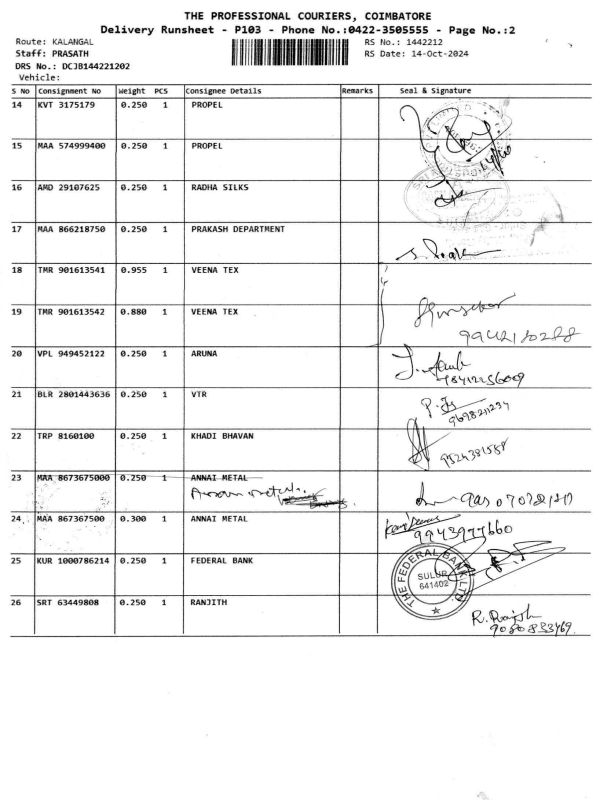 THE PROFESSIONAL COURIERS, COIMBATORE
Delivery Runsheet - P103 - Phone No.:0422-3505555 - Page No.:2
Route: KALANGAL RS No.: 1442212
Staff: PRASATH RS Date: 14-Oct-2024
DRS No.: DCJB144221202
Vehicle:
S No Consignment No Weight PCS Consignee Details Remarks Seal & Signature
14 KVT 3175179 0.250 1 PROPEL
15 MAA 574999400 0.250 1 PROPEL
16 AMD 29107625 0.250 1 RADHA SILKS
17 MAA 866218750 0.250 1 PRAKASH DEPARTMENT
18 TMR 901613541 0.955 1 VEENA TEX
19 TMR 901613542 0.880 1 VEENA TEX
9942130288
20 VPL 949452122 0.250 1 ARUNA
21 BLR 2801443636 0.250 1 VTR
9698211234
22 TRP 8160100 0.250 1 KHADI BHAVAN
9524381588
23 MAA 8673675000 0.250 1 ANNAI METAL
24 MAA 867367500 0.300 1 ANNAI METAL
9943977660
25 KUR 1000786214 0.250 1 FEDERAL BANK
THE FEDERAL BANK LTD.
SULUR
641402
26 SRT 63449808 0.250 1 RANJITH
R. Rajesh
9080833769